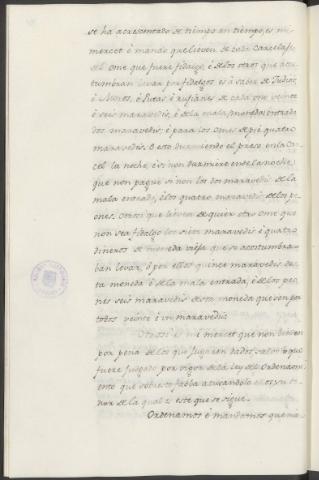 se ha acresentado de tiempo en tiempo, es mi
mercet é mando que lieven de cada Carcelaje
del ome que fuere fidalgo, é de los otros que acos
tumbran levar por fidalgos es á saber de Judios
é Moros, é Putas é rufianes de cada one veinte
é seis maravedis, é de la mala moneda entrada
dos maravedis: é para los omes de pié quatro
maravedis. E esto durmiendo el preso en la Car
cel la noche, é si non durmiere ende la noche,
que non pague si non los dos maravedis de la
mala entrada, é los quatro maravedis de los pe
ones. Otrosi que lieven de quier otro ome que
non sea fidalgo los siete maravedis é quatro
dineros de moneda vieja que se acostumbra
ban levar, é por ellos quince maravedis des
ta moneda é de la mala entrada, é de los peo
nes seis maravedis de esta moneda que son por
todos veinte é un maravedis.
Otrosi es mi mercet que non lieven
por pena de los que jugaren dados, salvo que
fuere juzgado por rigor de la Ley del Ordenam
iento que sobre esto fabla
nor de la qual es este que se sigue.
Ordenamos é mandamos que nin